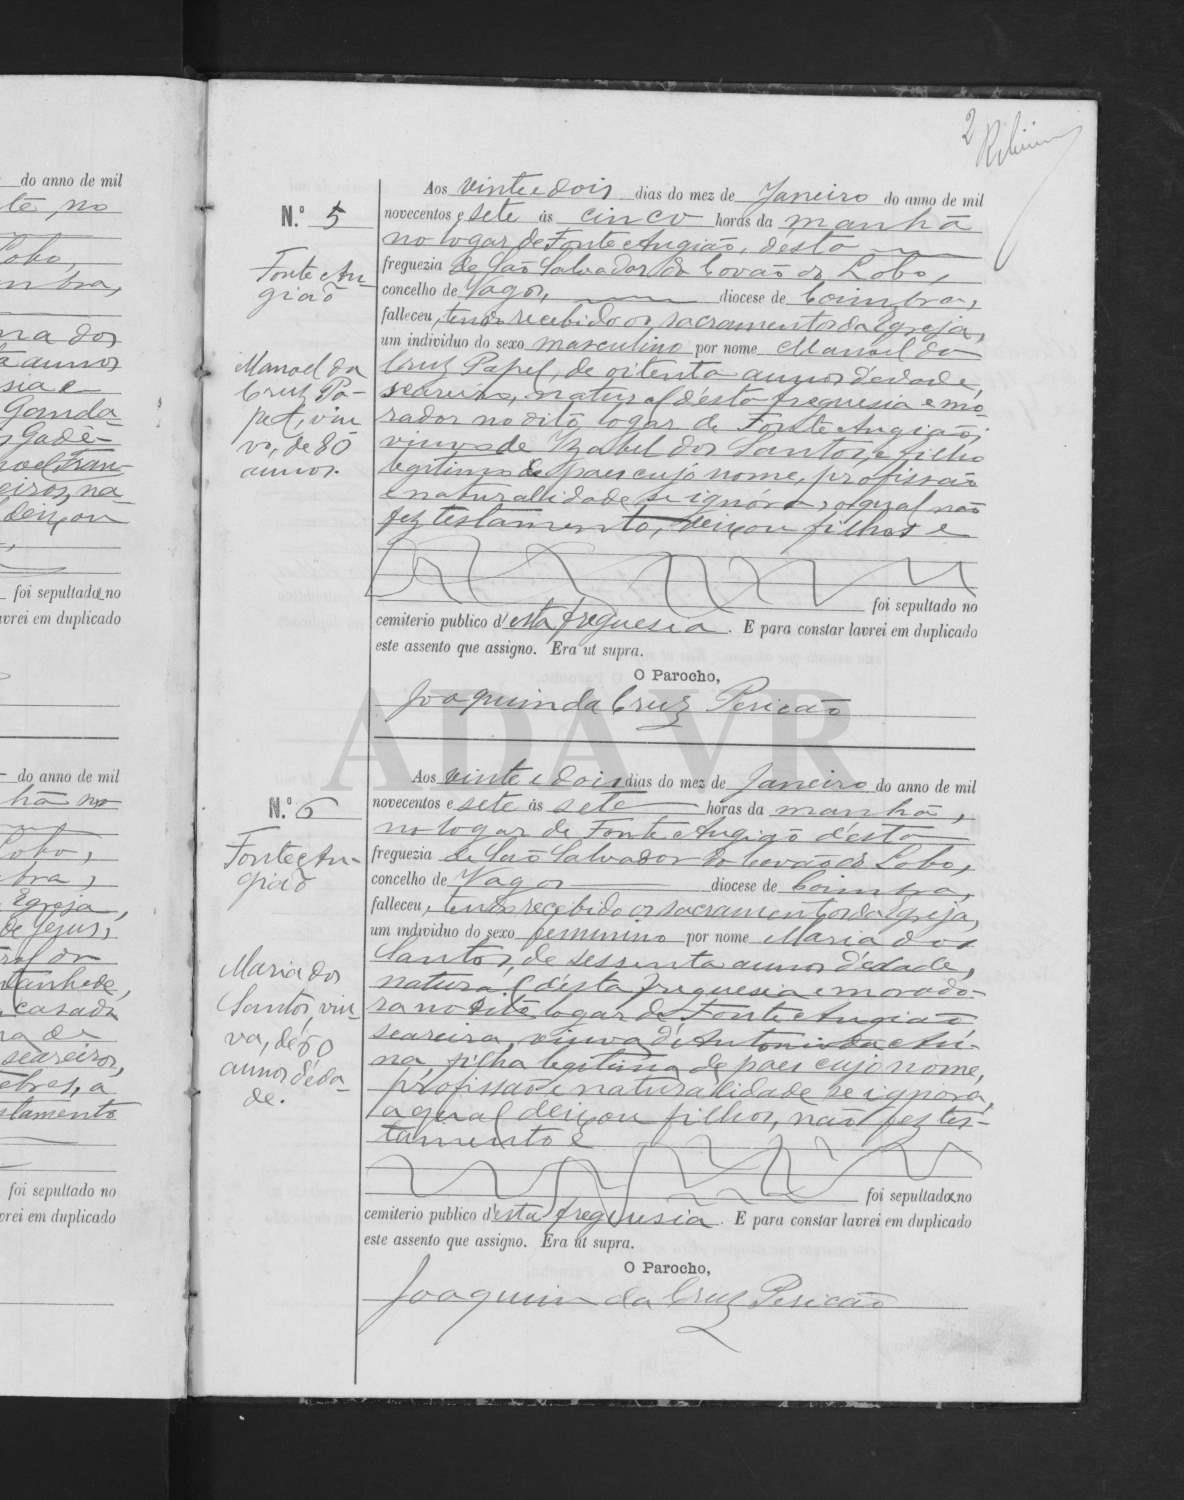 do anno de mil
Lobo,
anos
Ganda
deixou
foi sepultada no
em duplicado
do anno de mil
Lobo,
Egreja,
de Jesus,
tanhede,
casada
seareiros,
foi sepultado no
em duplicado
2
Aos vinte e dois dias do mez de Janeiro do anno de mil
N.º 5
novecentos e sete ás cinco horas da manhã
no logar de Fonte Angião, desta
Fonte An
gião
freguezia de São Salvador do Covão do Lobo,
concelho de Vagos, diocese de Coimbra,
falleceu, tendo recebido os sacramentos da Egreja,
um individuo do sexo masculino por nome Manoel da
Manoel da
Cruz Pa-
viu
vo, de 80
annos.
Cruz de oitenta annos d'edade,
seareiro, natural d'esta freguesia e mo-
rador no dito logar de Fonte Angião;
viuvo de Izabel dos Santos, e filho
legitimo de paes cujo nome, profissão
e naturallidade se ignóra, o qual não
fez testamento, deixou filhos e
foi sepultado no
cemiterio publico d'esta freguesia. E para constar lavrei em duplicado
este assento que assigno. Era ut supra.
O Parocho,
Joaquim da Cruz Pericão
ADAVR
Aos vinte e dois dias do mez de Janeiro do anno de mil
N.º 6
novecentos e sete ás sete horas da manhã,
no logar de Fonte Angião d'esta
Fonte An-
gião
freguezia de São Salvador do Covão do Lobo,
concelho de Vagos diocese de Coimbra,
falleceu, tendo recebido os sacramentos da Egreja,
um individuo do sexo feminino por nome Maria dos
Maria dos
Santos, viu-
va, de 60
annos d'eda-
de.
Santos, de sessenta annos d'edade,
natural d'esta freguesia e morado-
ra no dito logar de Fonte Angião
seareira, viuva d'Antonio da
filha legitima de paes cujo nome,
profissão e naturalidade se ignora,
a qual deixou filhos, não fez tes-
tamento e
foi sepultada no
cemiterio publico d'esta freguesia. E para constar lavrei em duplicado
este assento que assigno. Era ut supra.
O Parocho,
Joaquim da Cruz Pericão